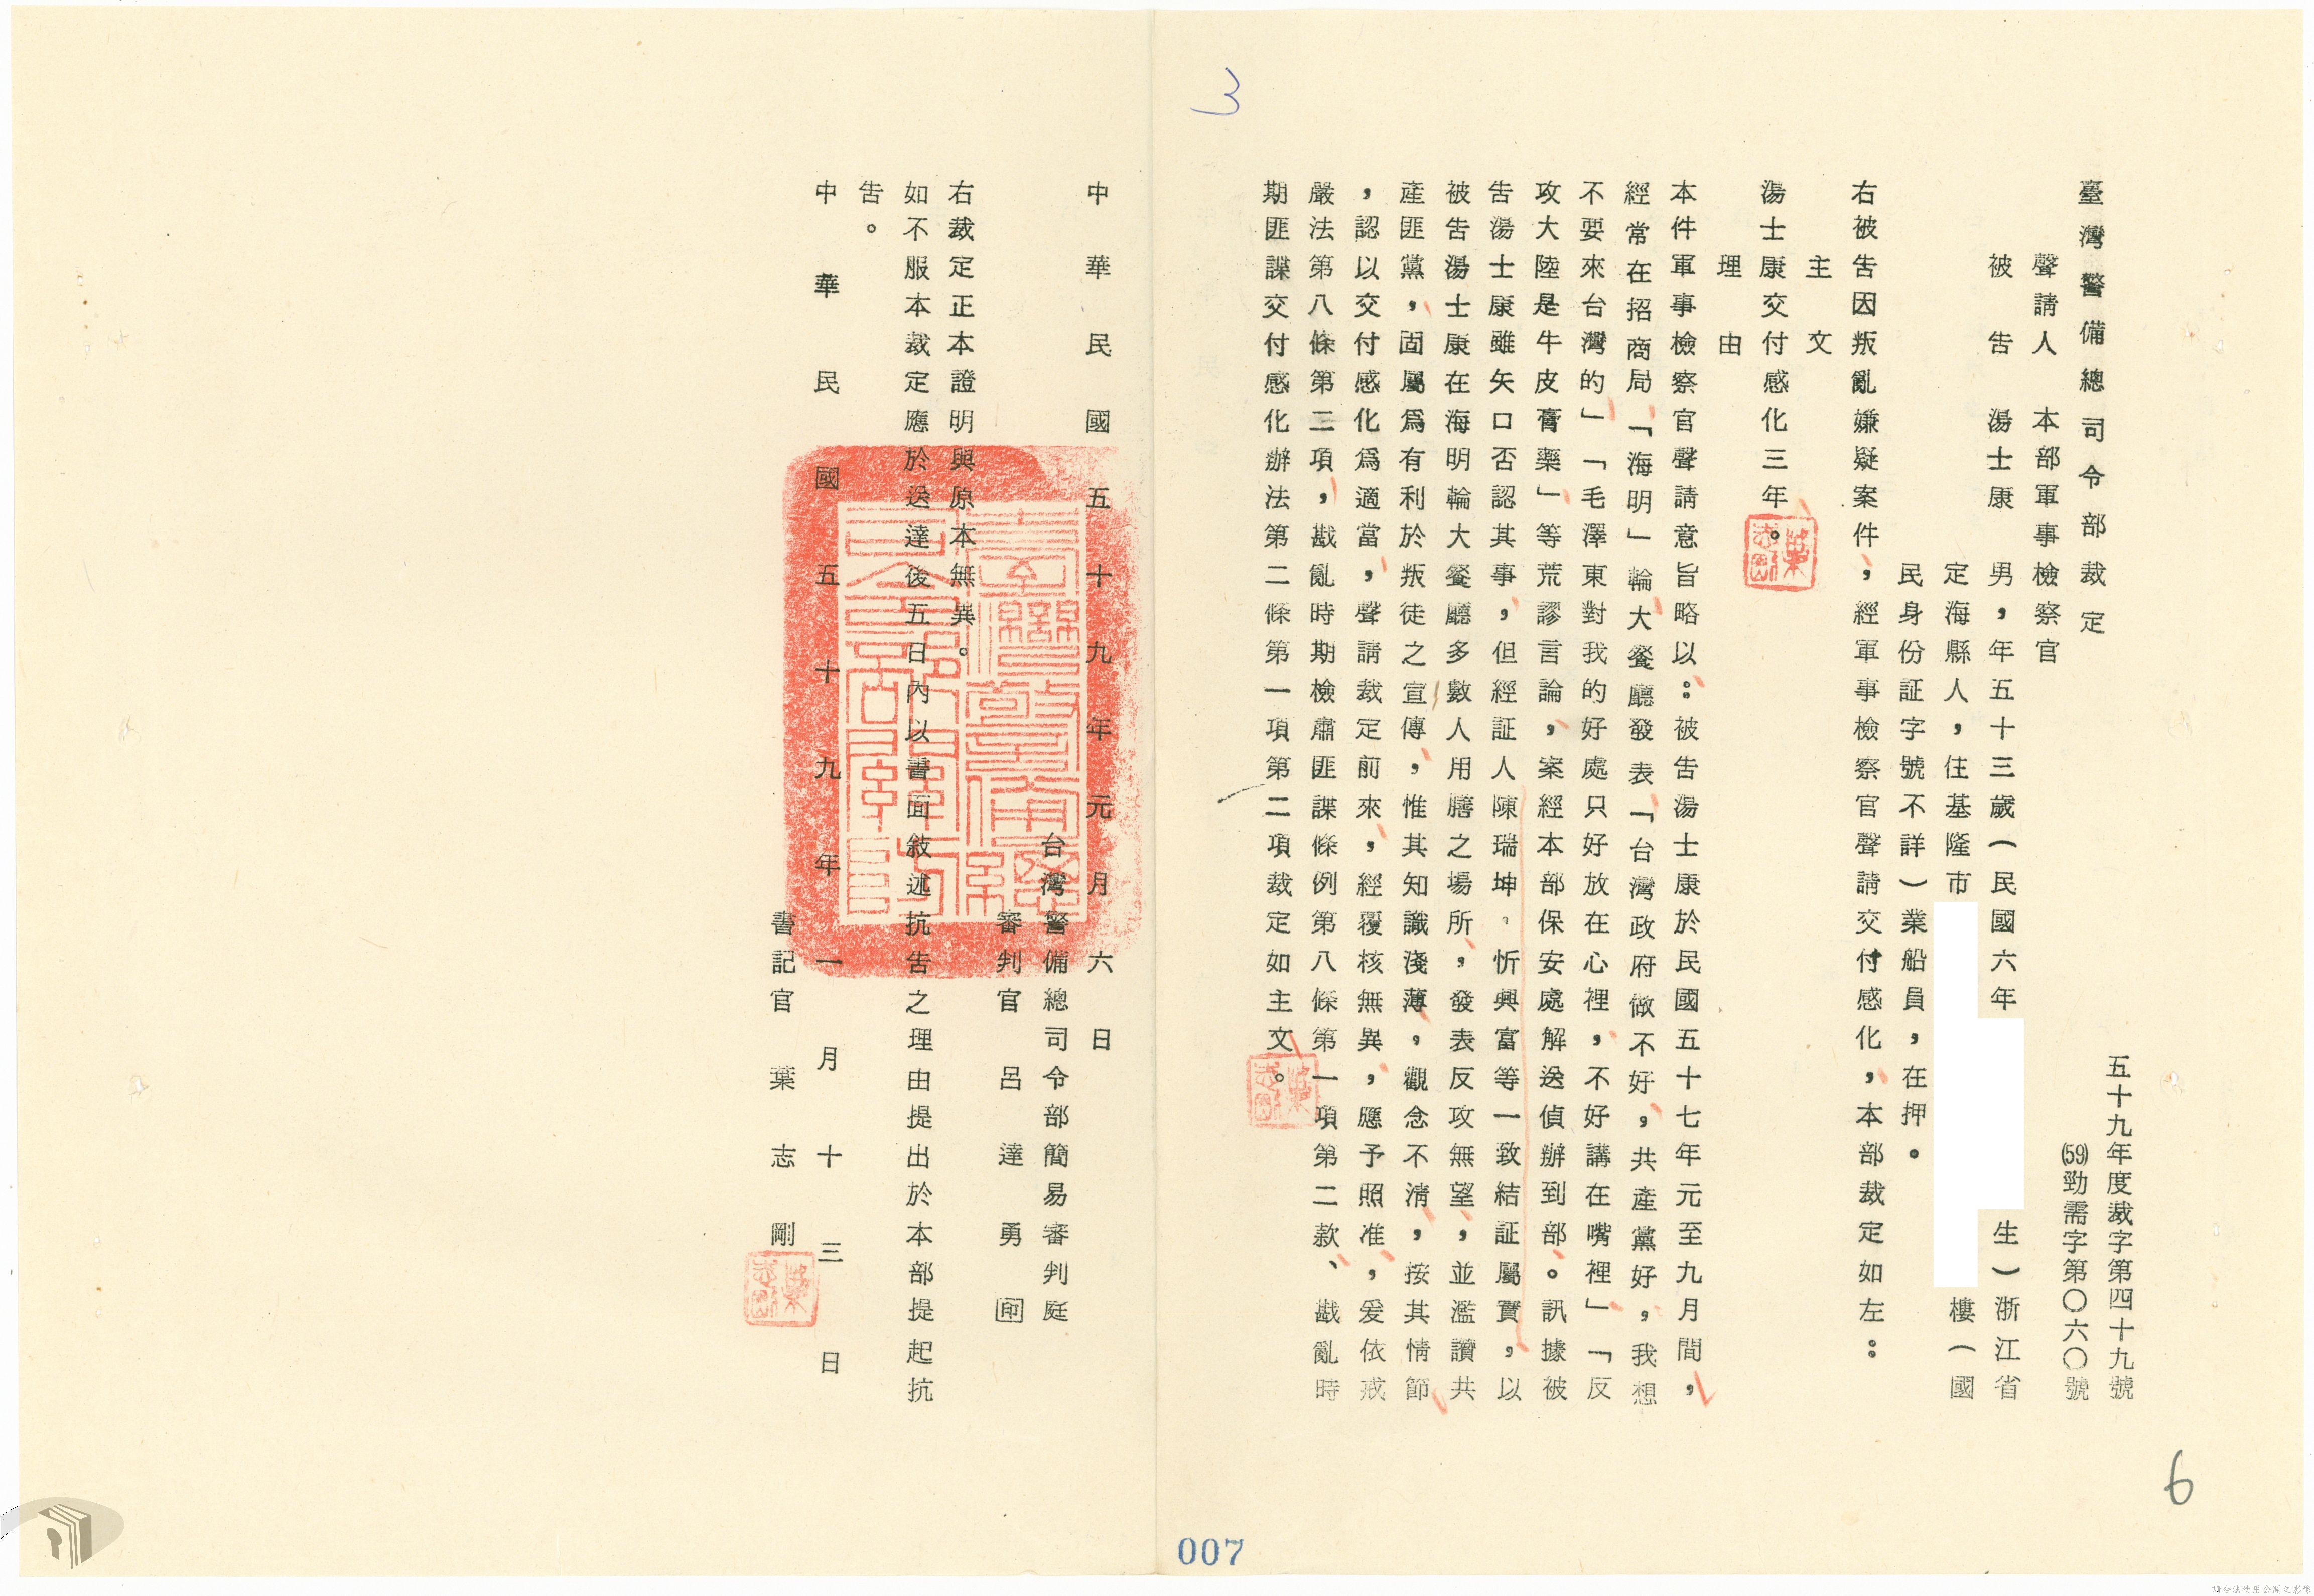 五十九年度裁字第四十九號
臺灣警備總司令部裁定
(59)勁需字第〇六〇號
聲請人　本部軍事檢察官
被告　湯士康　男，年五十三歲（民國六年　生）浙江省
定海縣人，住基隆市　樓（國
民身份証字號不詳）業船員，在押。
右被告因叛亂嫌疑案件，經軍事檢察官聲請交付感化，本部裁定如左：
主文
湯士康交付感化三年。
理由
本件軍事檢察官聲請意旨略以：被告湯士康於民國五十七年元至九月間，
經常在招商局「海明」輪大餐廳發表「台灣政府做不好，共產黨好，我想
不要來台灣的」「毛澤東對我的好處只好放在心裡，不好講在嘴裡」「反
攻大陸是牛皮膏藥」等荒謬言論，案經本部保安處解送偵辦到部。訊據被
告湯士康雖矢口否認其事，但經証人陳瑞坤、忻興富等一致結証屬實，以
被告湯士康在海明輪大餐廳多數人用膳之場所，發表反攻無望，並濫讚共
產匪黨，固屬為有利於叛徒之宣傳，惟其知識淺薄，觀念不清，按其情節
，認以交付感化為適當，聲請裁定前來，經覆核無異，應予照准，爰依戒
嚴法第八條第二項，戡亂時期檢肅匪諜條例第八條第一項第二款、戡亂時
期匪諜交付感化辦法第二條第一項第二項裁定如主文。
中華民國五十九年元月六日
台灣警備總司令部簡易審判庭
審判官　呂達勇　印
右裁定正本證明與原本無異。
如不服本裁定應於送達後五日內以書面敍述抗告之理由提出於本部提起抗
告。
中華民國五十九年一月十三日
書記官　葉志剛
葉志剛
3
6
007
請合法使用公開之影像